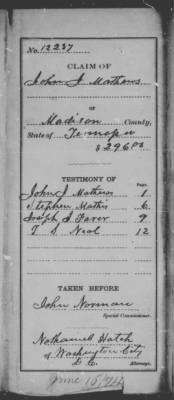 No. 12237
CLAIM OF
John J. Mathews
OF
Madison County,
State of Tennessee
$296.00
TESTIMONY OF
Page.
John J Mathews 1
Stephen Mathis 6
Joseph S Faver 9
T. S. Neal 12
TAKEN BEFORE
John Norman
Special Commissioner.
Nathaniel Hatch
of Washington City
D.C.
Attorney.
June 15